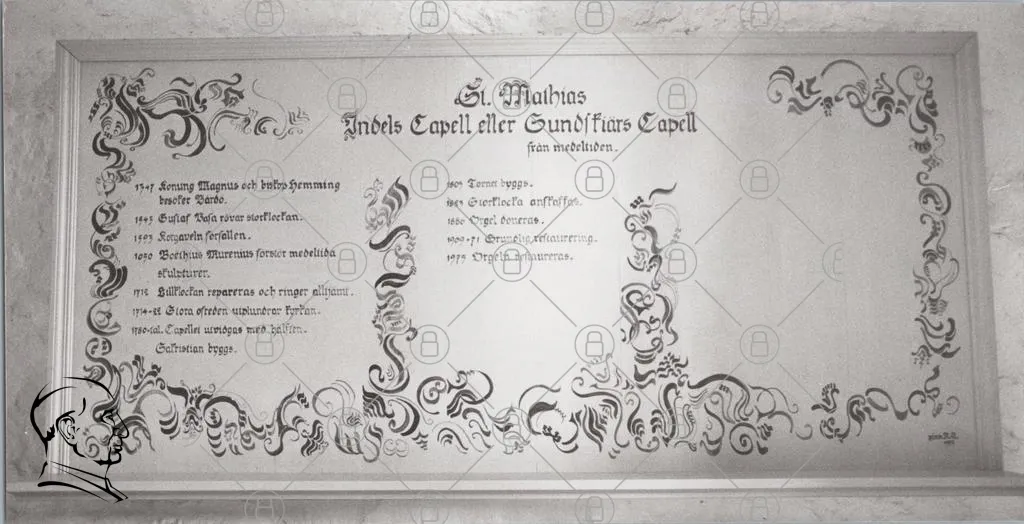 St. Mathias
Indels Capell eller Sundskiärs Capell
från medeltiden.
1347 Konung Magnus och biskop Hemming
besöker Vårdö.
1543 Gustaf Vasa rövar storklockan.
1593 Korgaveln förfallen.
1650 Boethius Murenius förstör medeltida
skulpturer.
1712 Lillklockan repareras och ringer alltjämt.
1714-22 Stora ofreden utplundrar kyrkan.
1780-tal. Capellet utvidgas med hälften.
Sakristian bygs.
1803 Tornet byggs.
1883 Storklocka anskaffas.
1886 Orgel doneras.
1969-71 Grundlig restaurering.
1975 Orgeln restaureras.